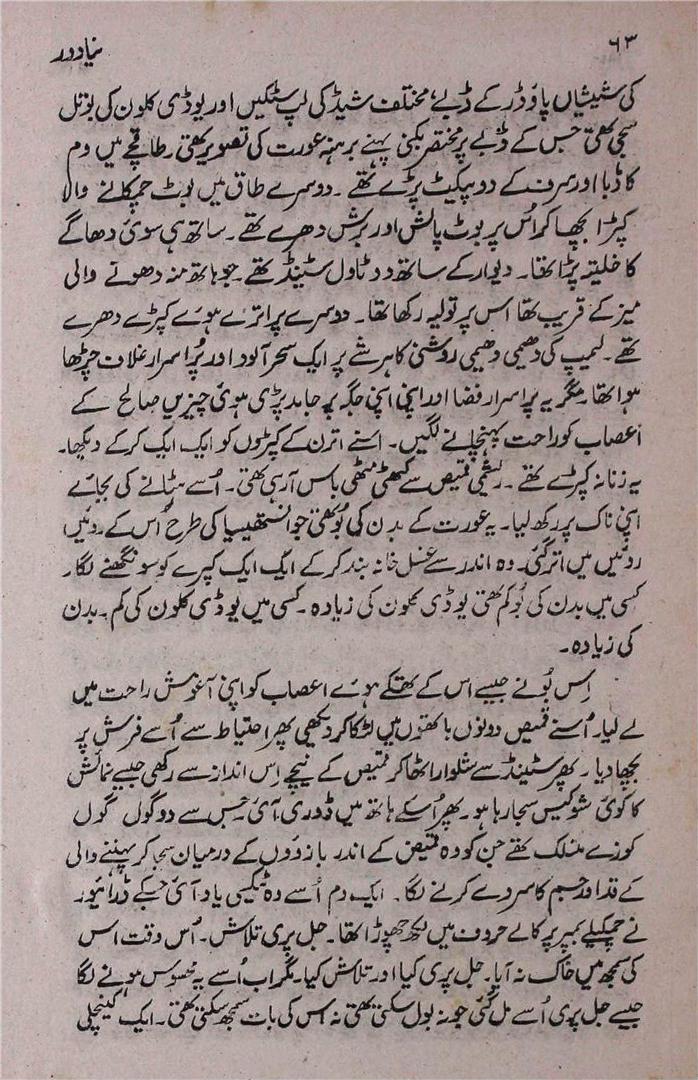 ۶۳ نیا دور
کی شیشیاں پاؤڈر کے ڈبے، مختلف شیڈ کی لپ سٹکیں اور یوڈی کلون کی بوتل
سجی تھی جس کے ڈبے پر مختصر بکنی پہنے برہنہ عورت کی تصویر تھی۔ طاقچے میں وم
کا ڈبا اور سرف کے دو پیکیٹ پڑے تھے۔ دوسرے طاق میں بوٹ چمکانے والا
کپڑا بچھا کر اُس پر بوٹ پالش اور برش دھرے تھے۔ ساتھ ہی سوئی دھاگے
کا خلیتہ پڑا تھا۔ دیوار کے ساتھ دو ٹاول سٹینڈ تھے۔ جو ہاتھ منہ دھونے والی
میز کے قریب تھا اس پر تولیہ رکھا تھا۔ دوسرے پر اترے ہوئے کپڑے دھرے
تھے۔ لیمپ کی دھیمی دھیمی روشنی کا ہر شے پر ایک سحر آلود اور پُراسرار غلاف چڑھا
ہوا تھا۔ مگر یہ پراسرار فضا اور اپنی اپنی جگہ پر جامد پڑی ہوئی چیزیں صالح کے
اعصاب کو راحت پہنچانے لگیں۔ اسنے اترن کے کپڑوں کو ایک ایک کر کے دیکھا۔
یہ زنانہ کپڑے تھے۔ ریشمی قمیص سے کھٹی مٹھی باس آرہی تھی۔ اُسے ہٹانے کی بجائے
اپنی ناک پر رکھ لیا۔ یہ عورت کے بدن کی بُو تھی جو انستھیسیا کی طرح اُس کے روئیں
روئیں میں اتر گئی۔ وہ اندر سے غسل خانہ بند کر کے ایک ایک کپڑے کو سونگھنے لگا۔
کسی میں بدن کی بُو کم تھی یوڈی کلون کی زیادہ۔ کسی میں یوڈی کلون کی کم۔ بدن
کی زیادہ۔
اِس بُو نے جیسے اس کے تھکے ہوئے اعصاب کو اپنی آغوش راحت میں
لے لیا۔ اُسنے قمیص دونوں ہاتھوں میں لٹکا کر دیکھی پھر احتیاط سے اُسے فرش پر
بچھا دیا۔ پھر سٹینڈ سے شلوار اٹھا کر قمیص کے نیچے اِس انداز سے رکھی جیسے نمائش
کا کوئی شوکیس سجا رہا ہو۔ پھر اُسکے ہاتھ میں ڈوری آئی۔ جس سے دو گول گول
کوزے منسلک تھے جن کو وہ قمیض کے اندر بازوؤں کے درمیان سجا کر پہننے والی
کے قد اور جسم کا سروے کرنے لگا۔ ایک دم اُسے وہ ٹیکسی یاد آئی جسکے ڈرائیور
نے چمکیلے بمپر پر کالے حروف میں لکھ چھوڑا تھا۔ جل پری تلاش۔ اُس وقت اس
کی سمجھ میں خاک نہ آیا۔ جل پری کیا اور تلاش کیا۔ مگر اب اُسے یہ محسوس ہونے لگا
جیسے جل پری اُسے مل گئی جو نہ بول سکتی تھی نہ اس کی بات سمجھ سکتی تھی۔ ایک کینچلی